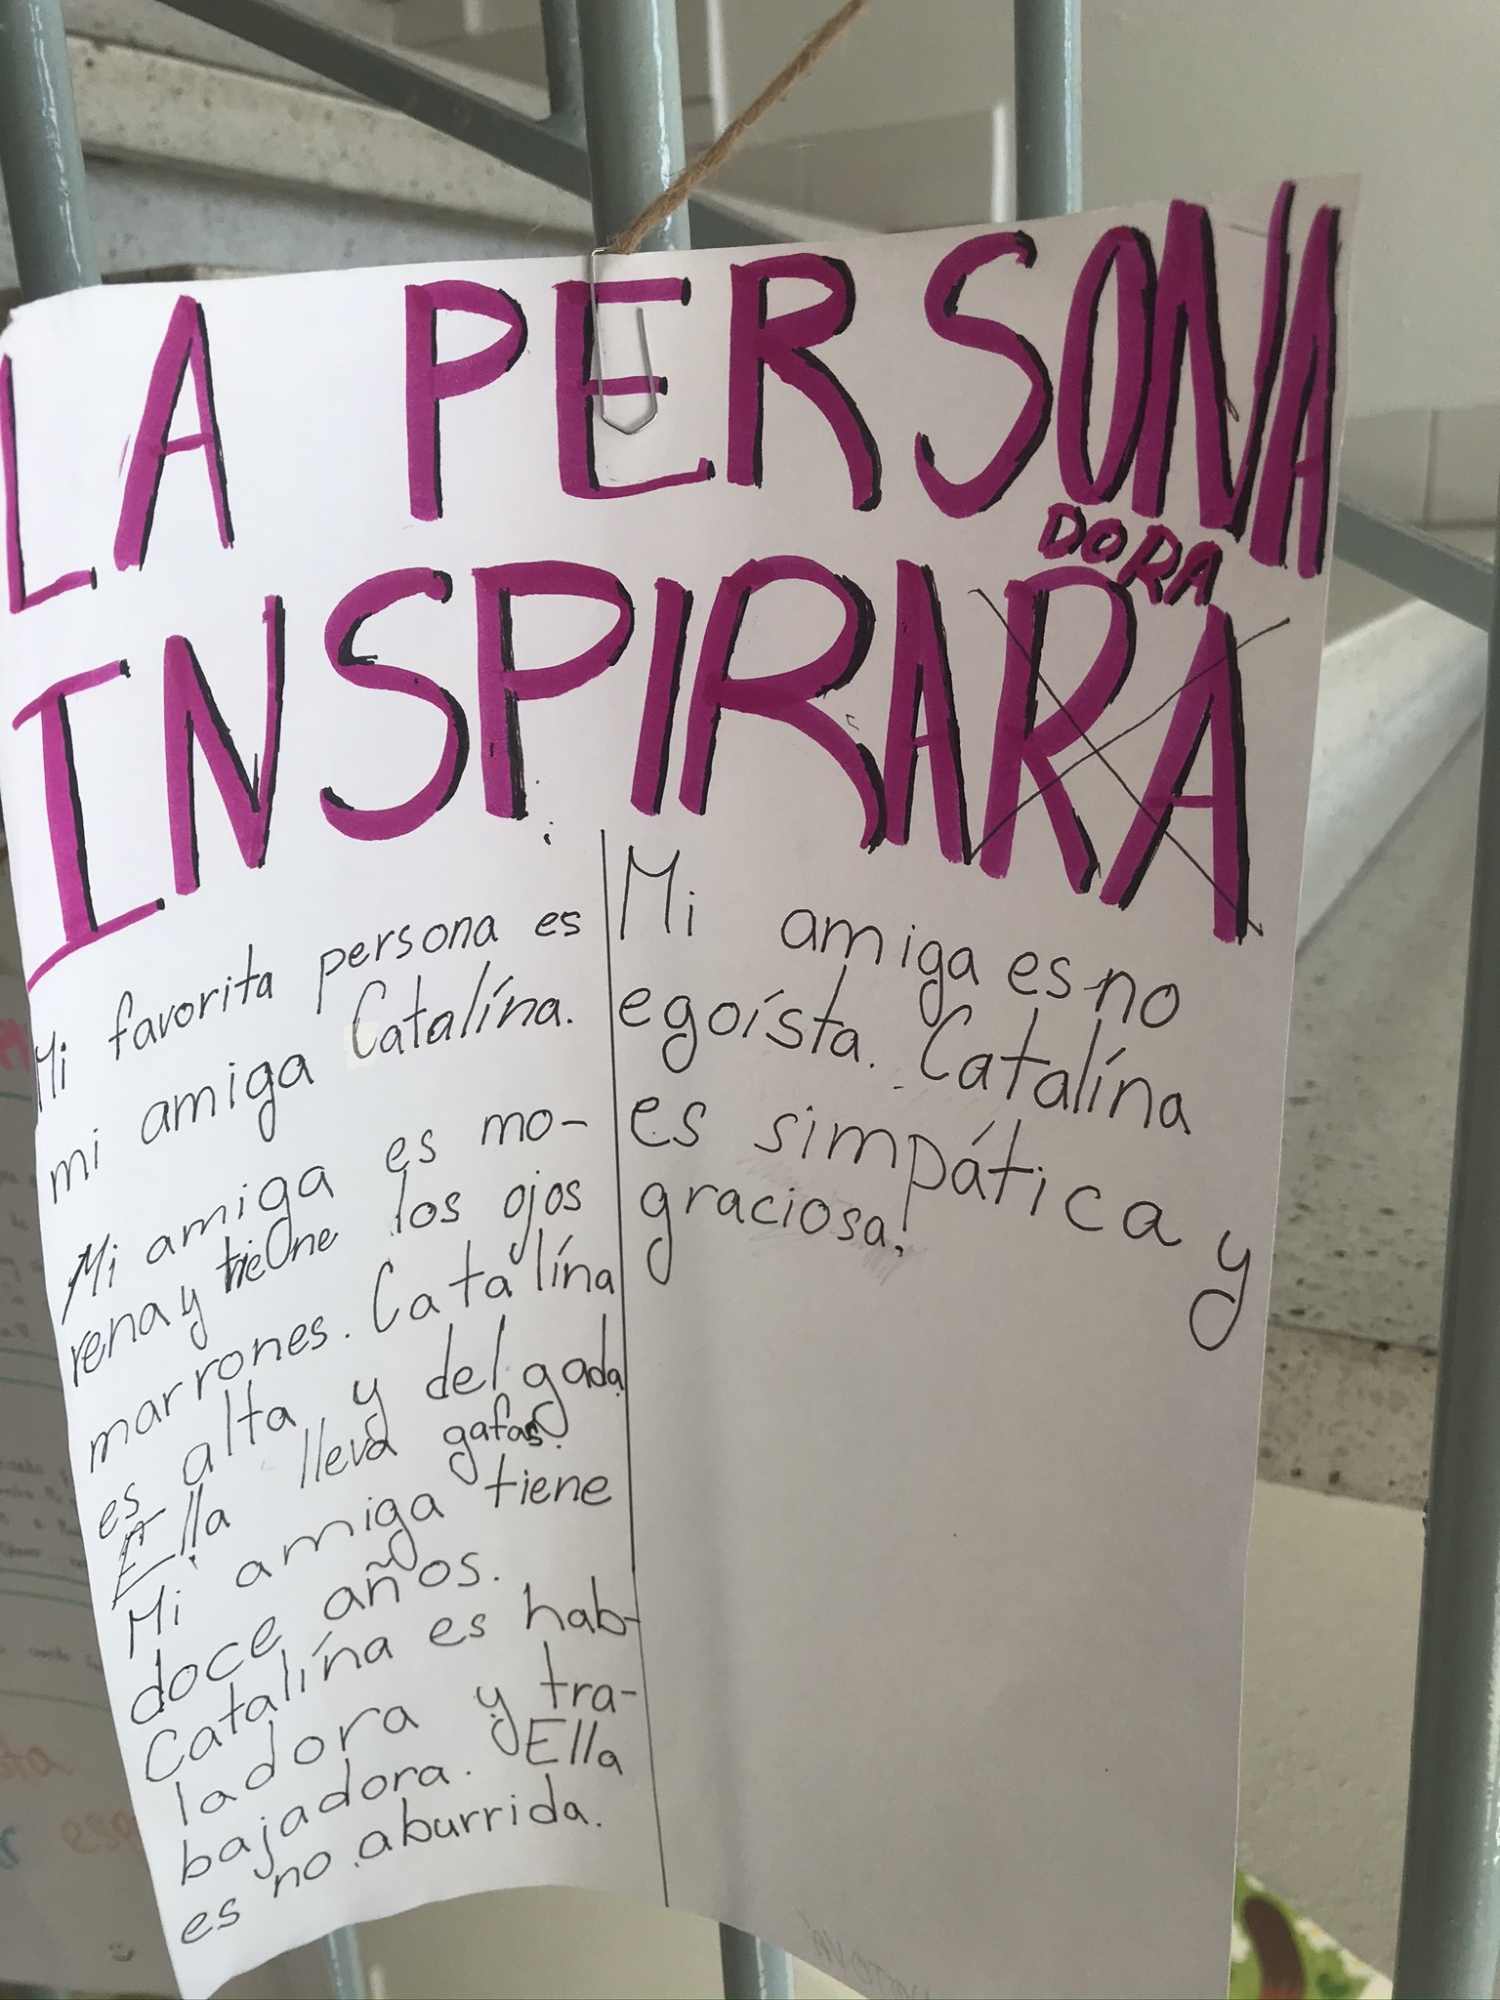 LA PERSONA
DORA
INSPIRARA
Mi favorita persona es
mi amiga Catalína.
Mi amiga es mo-
rena y tiene los ojos
marrones. Catalína
es alta y delgada
Ella lleva gafas.
Mi amiga tiene
doce años.
Catalína es hab-
ladora y tra-
bajadora. Ella
es no aburrida.
Mi amiga es no
egoísta. Catalína
es simpática y
graciosa!